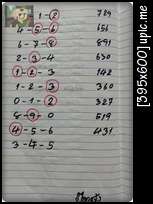 1-2 729
4-5-6 656
6-7-8 891
2-3-4 630
1-2-3 142
1-2-3 360
0-1-2 327
8-9-0 519
4-5-6 431
3-4-5
[395x600] upic.me